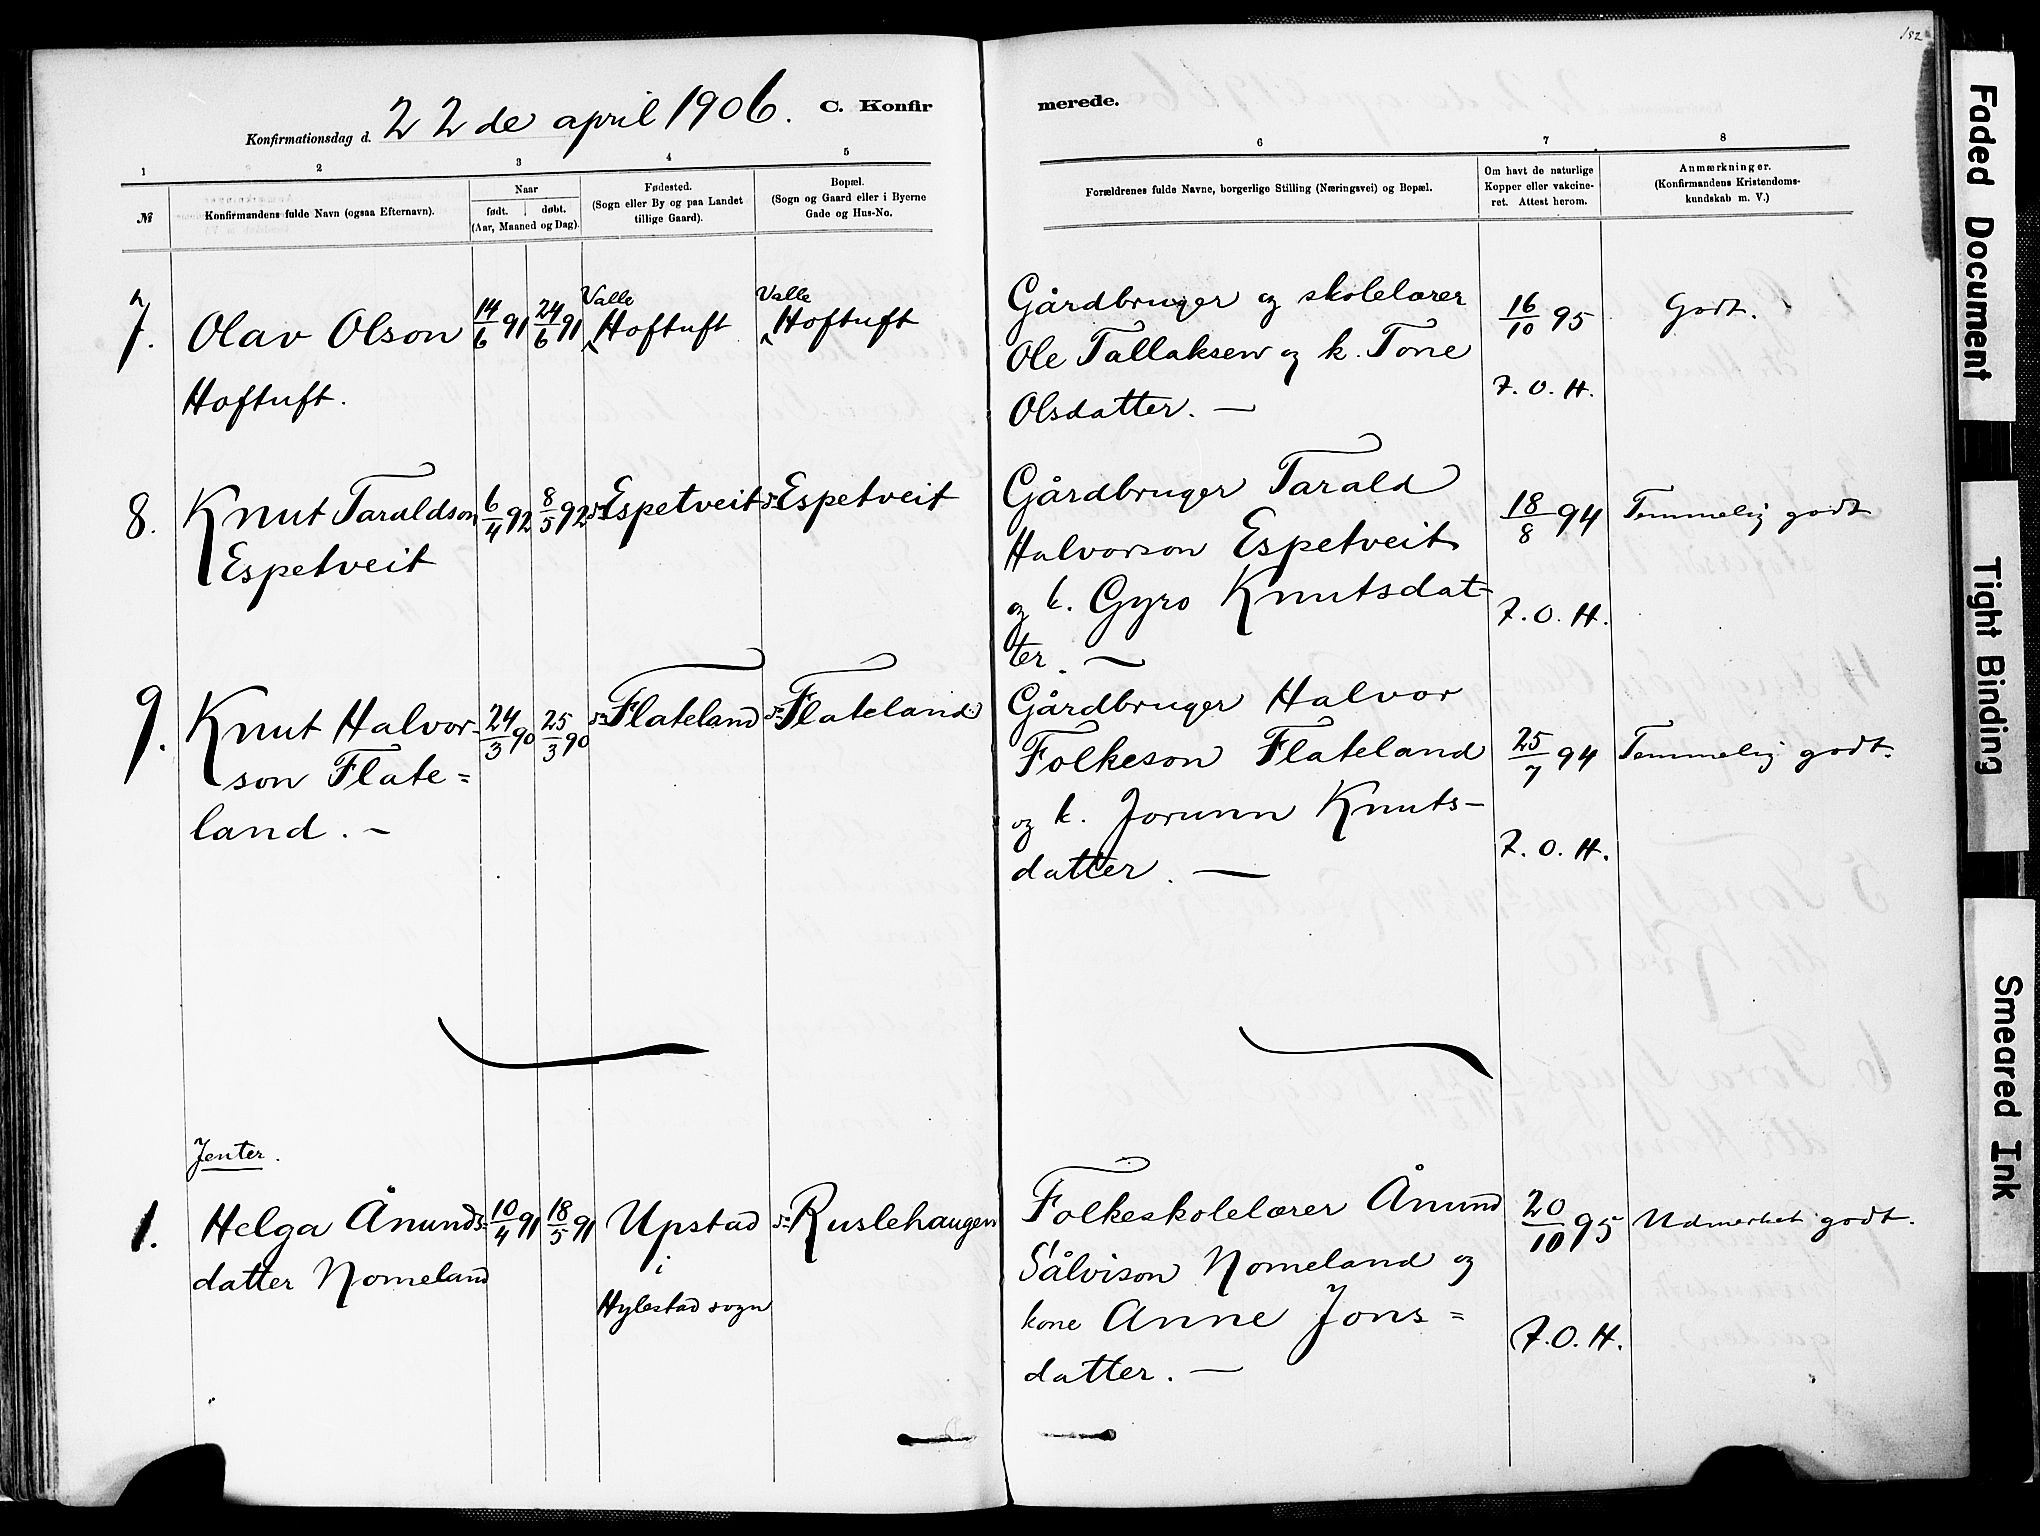 152
Konfirmationsdag d. 22de april 1906.
C. Konfir
merede.
1 2 3 4 5
6 7 8
№
Konfirmandens fulde Navn (ogsaa Efternavn).
Naar
født. døbt.
(Aar, Maaned og Dag).
Fødested.
(Sogn eller By og paa Landet
tillige Gaard).
Bopæl.
(Sogn og Gaard eller i Byerne
Gade og Hus-No.
Forældrenes fulde Navne, borgerlige Stilling (Næringsvei) og Bopæl.
Om havt de naturlige
Kopper eller vakcine-
ret. Attest herom.
Anmærkninger.
(Konfirmandens Kristendoms-
kundskab m. V.)
7.
Olav Olson
Hoftuft.
14/6 91
24/6 91
Valle
Hoftuft
Valle
Hoftuft
Gårdbruger og skolelærer
Ole Tallaksen og k. Tone
Olsdatter. —
16/10 95
7. O. H.
Godt.
8.
Knut Taraldson
Espetveit
6/4 92
8/5 92
Espetveit
Espetveit
Gårdbruger Tarald
Halvorson Espetveit
og k. Gyro Knutsdat-
ter. —
18/8 94
7. O. H.
Temmelig godt
9.
Knut Halvor-
son Flate=
land. —
24/3 90
25/3 90
Flateland
Flateland
Gårdbruger Halvor
Folkeson Flateland
og k. Jorunn Knuts-
datter. —
25/7 94
7. O. H.
Temmelig godt.
Jenter.
1.
Helga Ånunds=
datter Nomeland
10/4 91
18/5 91
Upstad
i
Hylestad sogn
Ruslehaugen
Folkeskolelærer Ånund
Sålvison Nomeland og
kone Anne Jons=
datter. —
20/10 95
7. O. H.
Udmerket godt.
Faded Document
Tight Binding
Smeared Ink